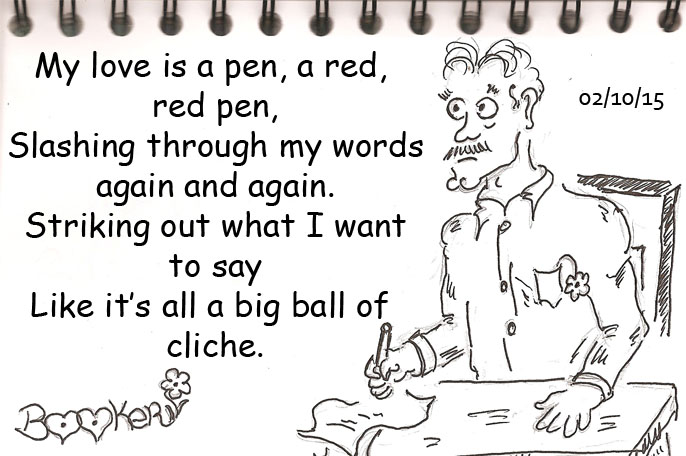 My love is a pen, a red,
red pen,
Slashing through my words
again and again.
Striking out what I want
to say
Like it's all a big ball of
cliche.
02/10/15
Bookery